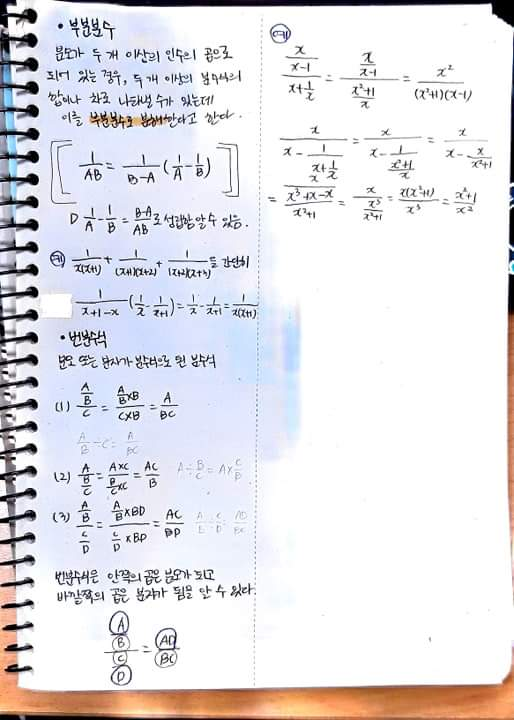 • 부분분수
분모가 두 개 이상의 인수의 곱으로
되어 있는 경우, 두 개 이상의 분수식의
합이나 차로 나타낼 수가 있는데
이를 부분분수로 분해한다고 한다.
1/AB = 1/(B-A) (1/A - 1/B)
▷ 1/A - 1/B = (B-A)/AB 로 성립함을 알 수 있음.
예) 1/x(x+1) + 1/(x+1)(x+2) + 1/(x+2)(x+3) 를 간단히
1/(x+1-x) (1/x - 1/(x+1)) = 1/x - 1/(x+1) = 1/x(x+1)
• 번분수식
분모 또는 분자가 분수식으로 된 분수식
(1) (A/B)/C = (A/B×B)/(C×B) = A/BC
A/B ÷ C = A/BC
(2) A/(B/C) = (A×C)/(B/C×C) = AC/B A÷B/C = A×C/B
(3) (A/B)/(C/D) = (A/B×BD)/(C/D×BD) = AC/BD A/B ÷ C/D = AD/BC
번분수식은 안쪽의 곱은 분모가 되고
바깥쪽의 곱은 분자가 됨을 알 수 있다.
(A/B)/(C/D) = AD/BC
예)
(x/(x-1))/(x+1/x) = (x/(x-1))/((x²+1)/x) = x²/(x²+1)(x-1)
x/(x - 1/(x+1/x)) = x/(x - 1/((x²+1)/x)) = x/(x - x/(x²+1))
= x/((x³+x-x)/(x²+1)) = x/(x³/(x²+1)) = x(x²+1)/x³ = (x²+1)/x²